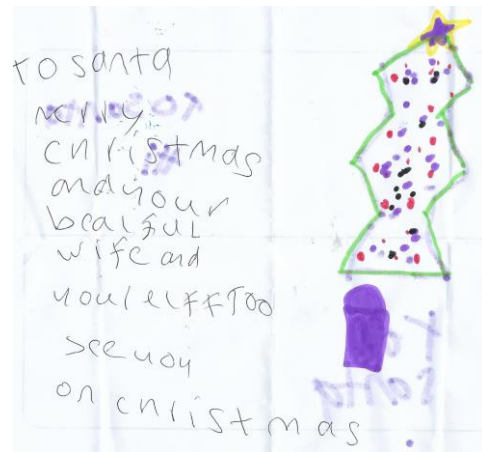 to santa
merry
christmas
and your
beaiful
wife and
your elffToo
see uoy
on christmas
To
santa